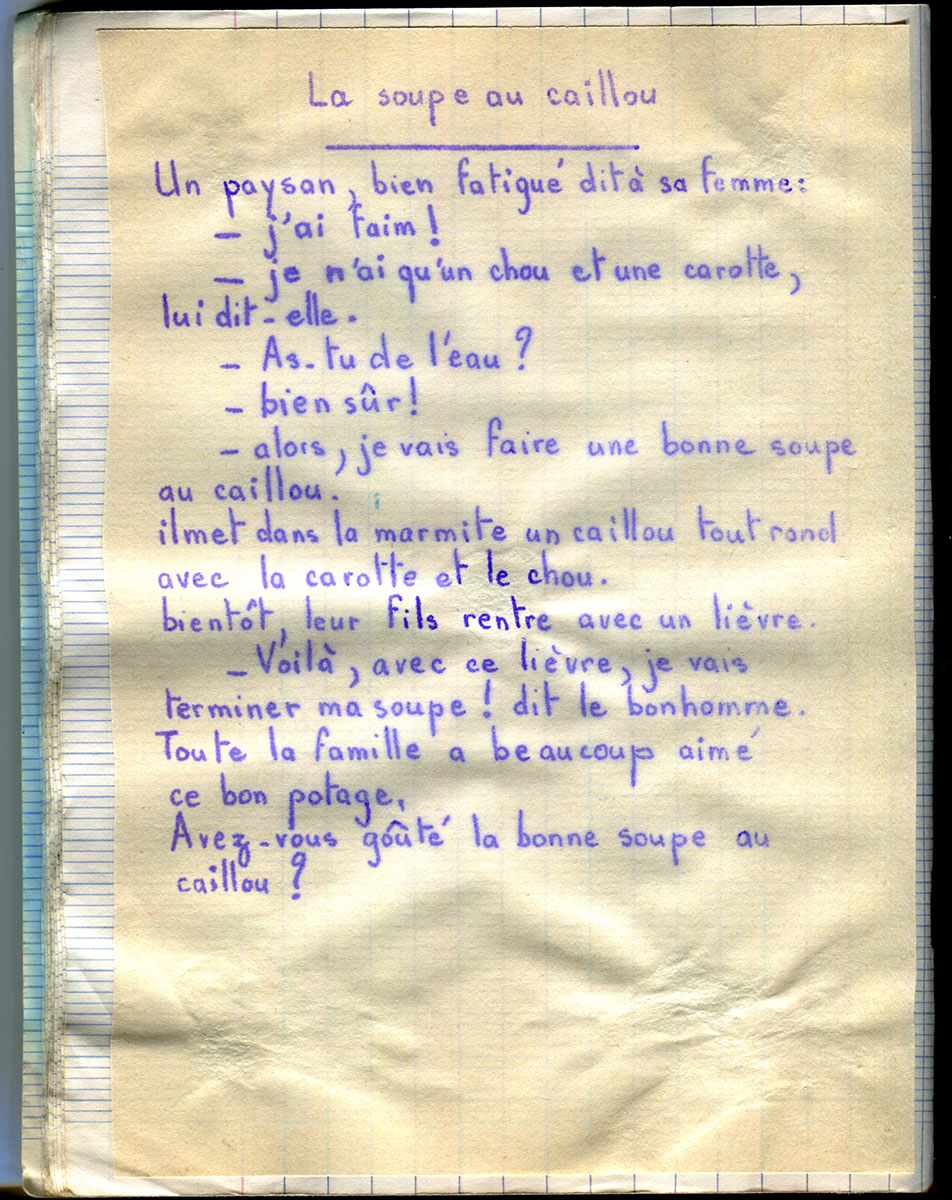 La soupe au caillou
Un paysan, bien fatigué dit à sa femme:
– j'ai faim!
– je n'ai qu'un chou et une carotte,
lui dit-elle.
– As-tu de l'eau?
– bien sûr!
– alors, je vais faire une bonne soupe
au caillou.
il met dans la marmite un caillou tout rond
avec la carotte et le chou.
bientôt, leur fils rentre avec un lièvre.
– Voilà, avec ce lièvre, je vais
terminer ma soupe! dit le bonhomme.
Toute la famille a beaucoup aimé
ce bon potage.
Avez-vous goûté la bonne soupe au
caillou?